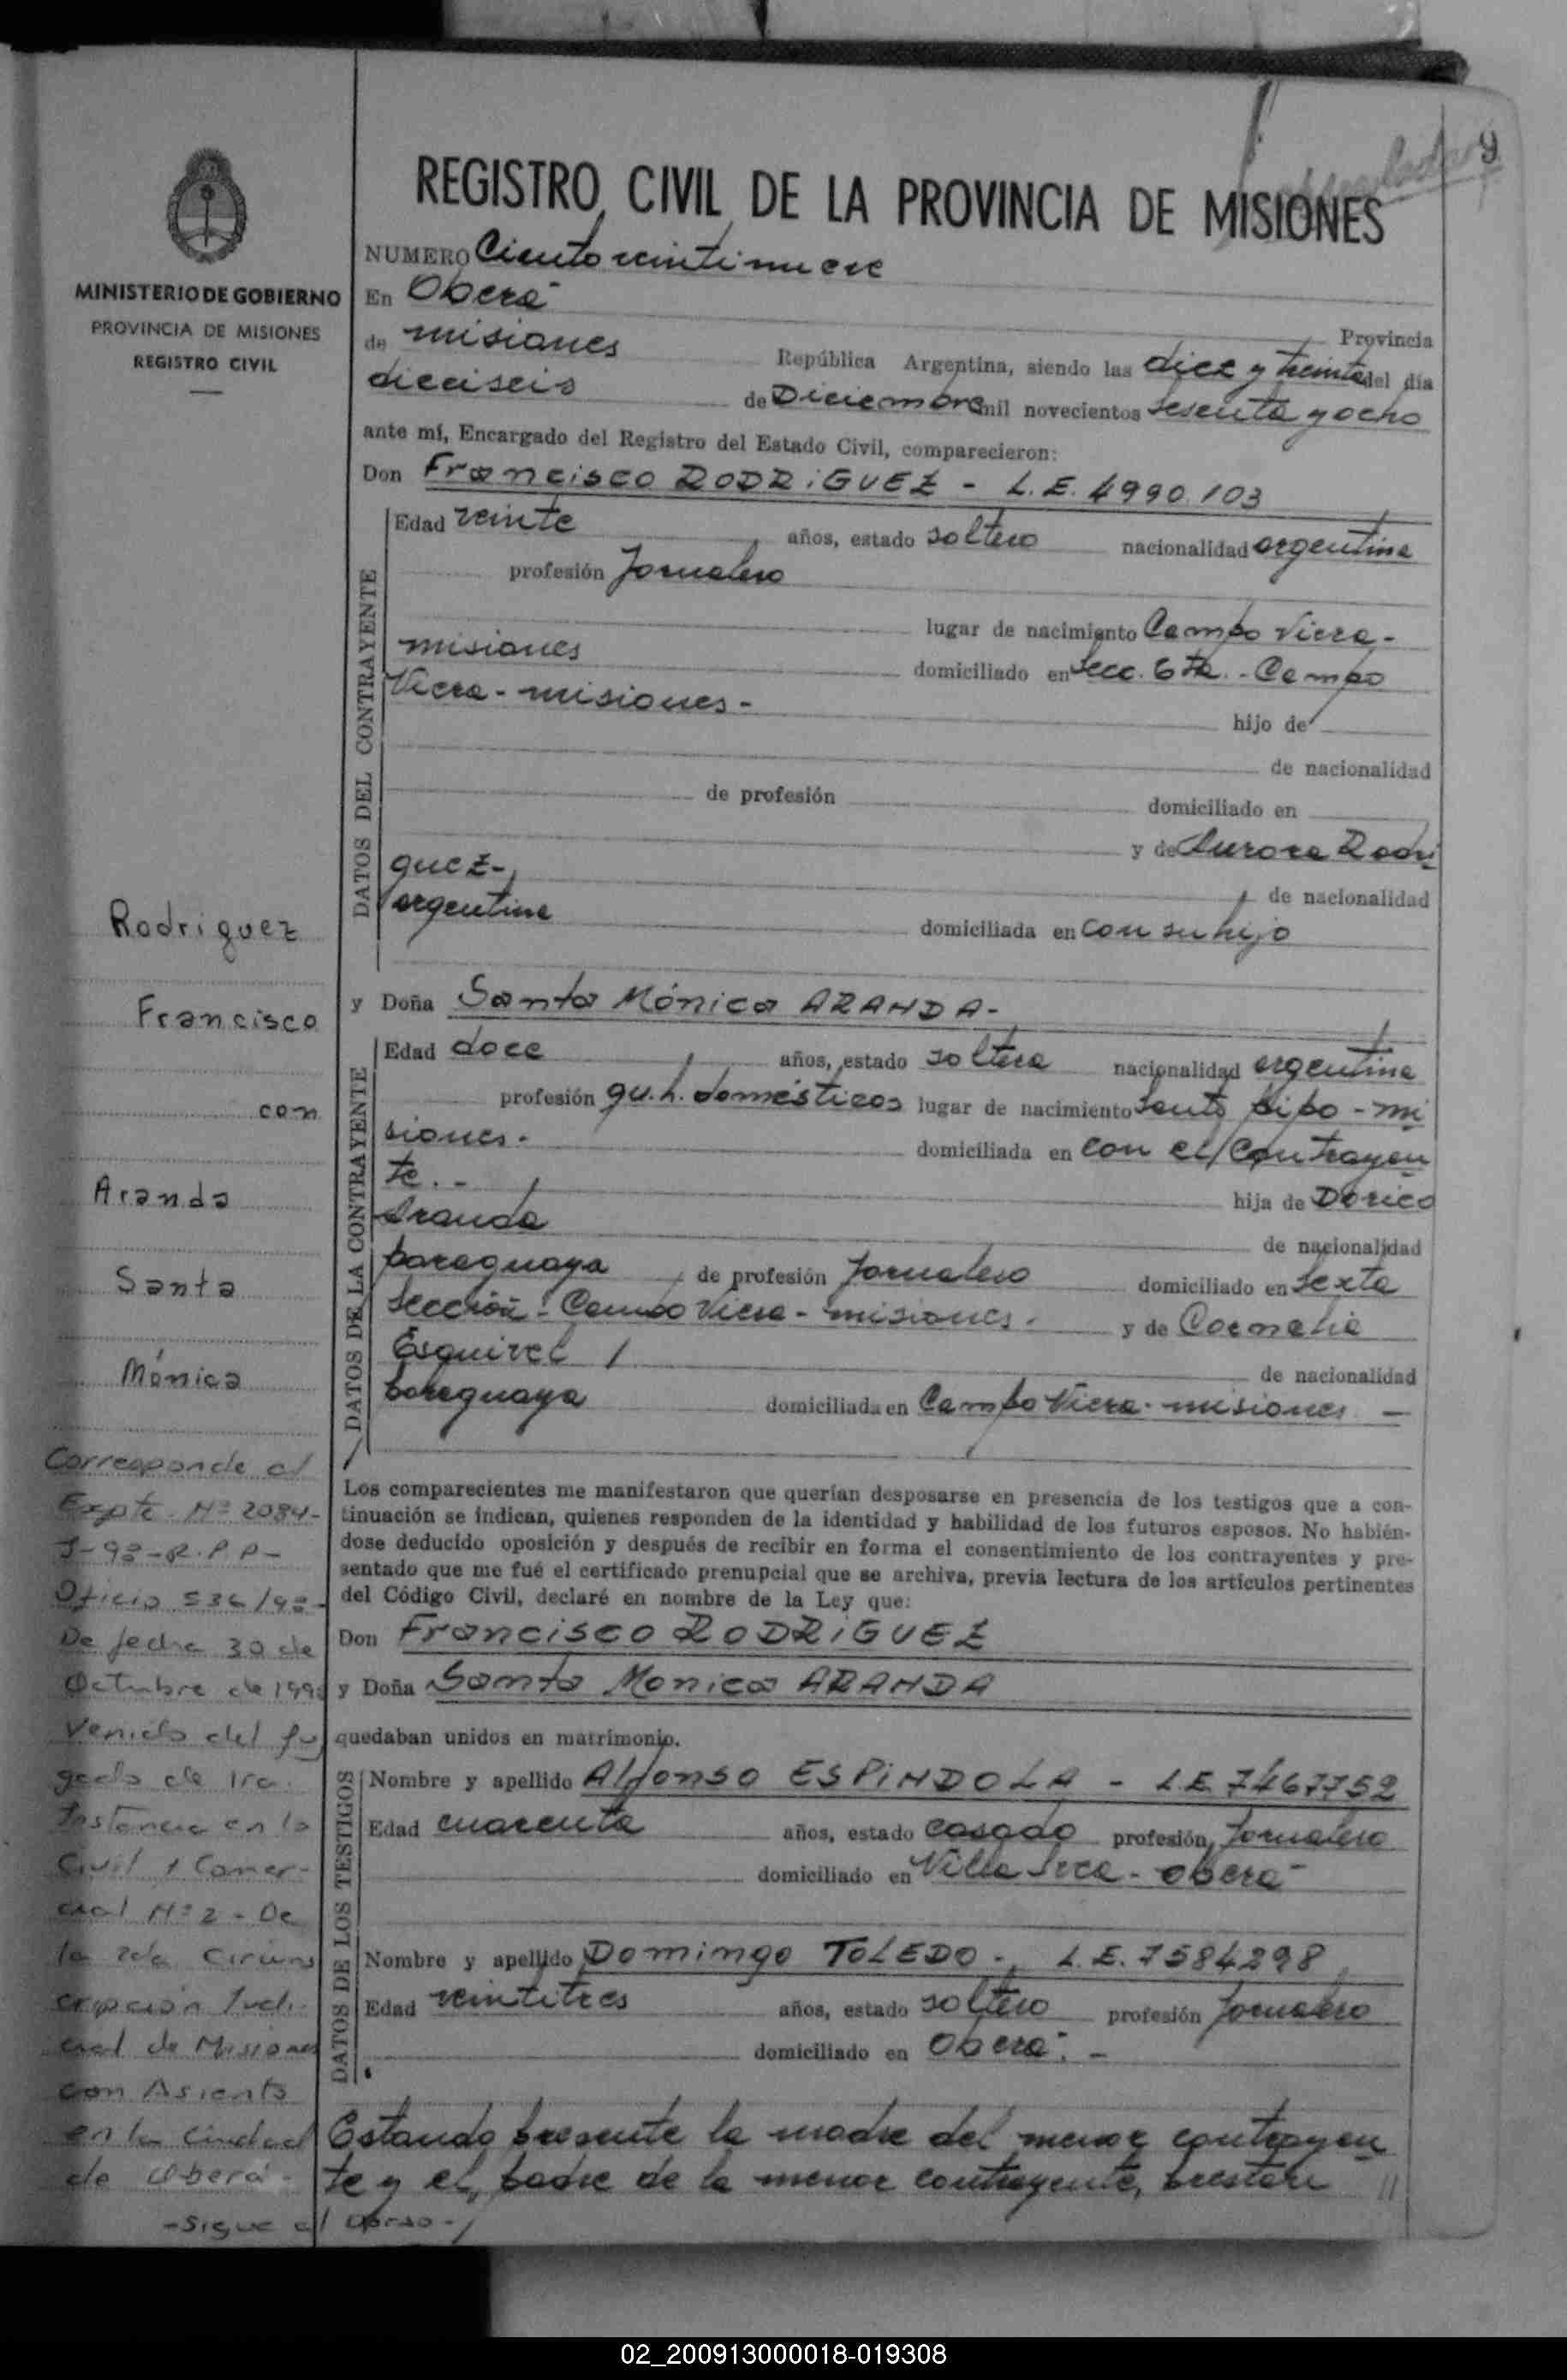 9
REGISTRO CIVIL DE LA PROVINCIA DE MISIONES
MINISTERIO DE GOBIERNO
PROVINCIA DE MISIONES
REGISTRO CIVIL
NUMERO Ciento veintinueve
En Oberá
Provincia
de misiones República Argentina, siendo las diez y treinta del día
dieciseis de Diciembre mil novecientos sesenta y ocho
ante mí, Encargado del Registro del Estado Civil, comparecieron:
Don Francisco RODRIGUEZ - L.E. 4990.103
DATOS DEL CONTRAYENTE
Edad veinte años, estado soltero nacionalidad argentina
profesión Jornalero
lugar de nacimiento Campo Viera -
misiones domiciliado en Secc. 6ta. - Campo
Viera - misiones -
hijo de
de nacionalidad
de profesión domiciliado en
y de Aurora Rodri
guez -
de nacionalidad
argentina domiciliada en con su hijo
y Doña Santa Mónica ARANDA -
DATOS DE LA CONTRAYENTE
Edad doce años, estado soltera nacionalidad argentina
profesión qu. h. domésticos lugar de nacimiento Santo Pipo - mi
siones - domiciliada en con el contrayen
te. -
hija de Dorico
Aranda
de nacionalidad
paraguaya de profesión Jornalero domiciliado en Sexta
Sección - Campo Viera - misiones. y de Cornelia
Esquivel
de nacionalidad
paraguaya domiciliada en Campo Viera - misiones -
Los comparecientes me manifestaron que querían desposarse en presencia de los testigos que a con-
tinuación se indican, quienes responden de la identidad y habilidad de los futuros esposos. No habién-
dose deducido oposición y después de recibir en forma el consentimiento de los contrayentes y pre-
sentado que me fué el certificado prenupcial que se archiva, previa lectura de los artículos pertinentes
del Código Civil, declaré en nombre de la Ley que:
Don Francisco RODRIGUEZ
y Doña Santa Monica ARANDA
quedaban unidos en matrimonio.
DATOS DE LOS TESTIGOS
Nombre y apellido Alfonso ESPINDOLA - L.E. 7467752
Edad cuarenta años, estado casado profesión Jornalero
domiciliado en Villa Seca - Oberá
Nombre y apellido Domingo TOLEDO - L.E. 7584298
Edad veintitres años, estado soltero profesión Jornalero
domiciliado en Oberá. -
Estando presente la madre del menor contrayen
te y el padre de la menor contrayente, prestan //
Rodriguez
Francisco
con
Aranda
Santa
Mónica
Corresponde al
Expte. Nº 2084-
R.P.P-
Oficio 536/
De fecha 30 de
Octubre de
Venido del Juz
gado de 1ra.
Instancia en lo
Civil y Comer-
cial Nº 2 - De
la 2da Circuns
cripción Judi
cial de Misiones
con Asiento
en la ciudad
de Oberá -
- Sigue al Dorso -
02_200913000018-019308